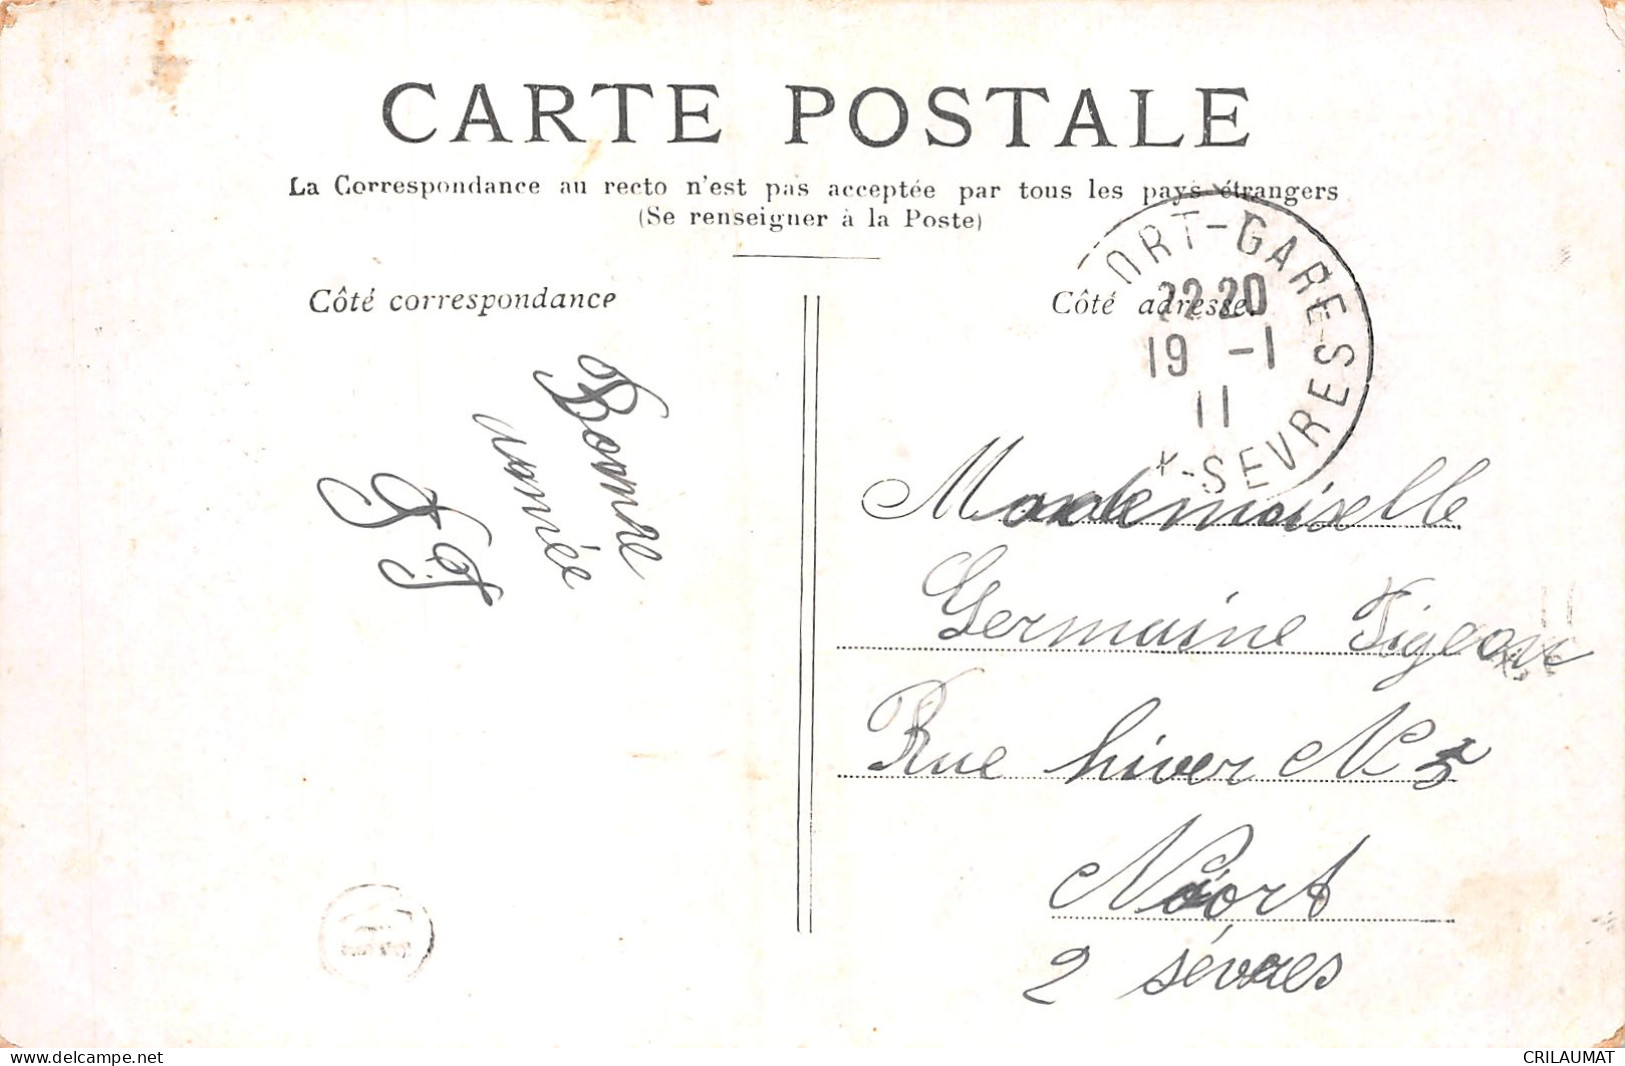 CARTE POSTALE
La Correspondance au recto n'est pas acceptée par tous les pays étrangers
(Se renseigner à la Poste)
Côté correspondance
Côté adresse.
ORT-GARE
22 20
19 -1
11
*-SEVRES
Bonne
année
Mademoiselle
Germaine Pigeon
Rue hiver N 5
Niort
2 sévres
www.delcampe.net
CRILAUMAT